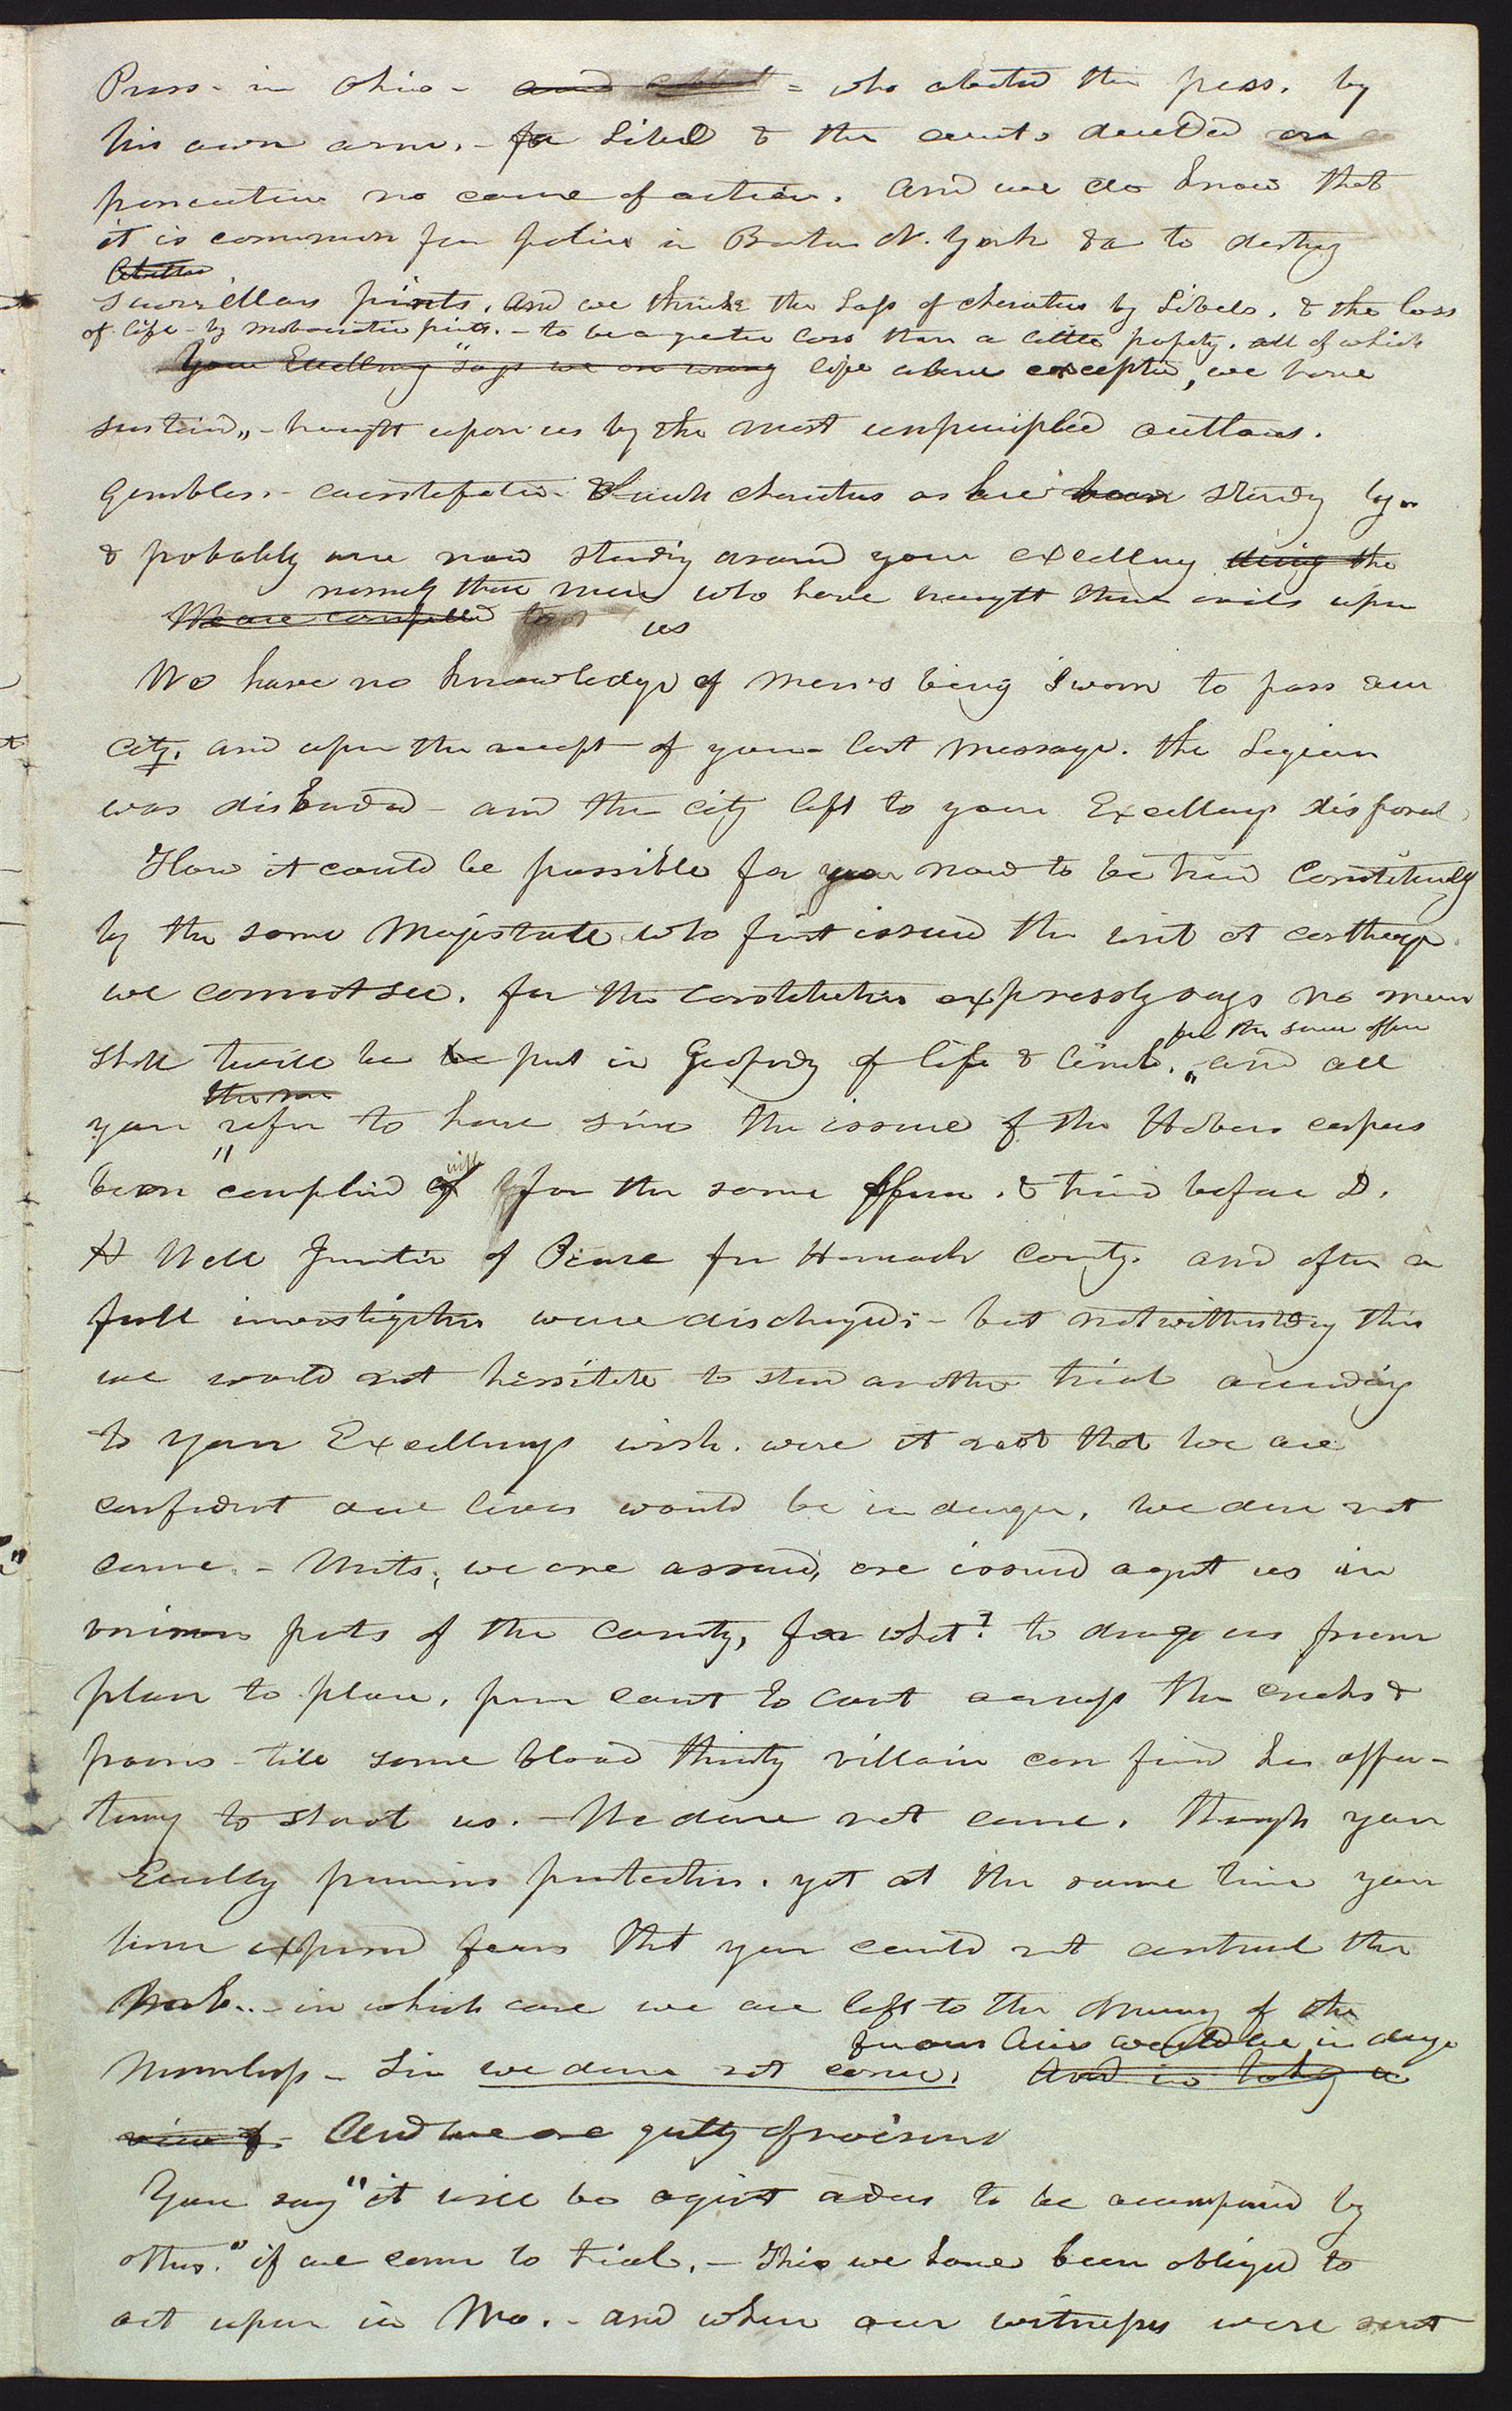 Press. in Ohio - and abated = who abated the press. by
his own arm. - for Libel & the courts decided on
prosecution no cause of action. and we do know that
it is common for police in Boston N. York &c to destroy
scurrillous prints. and we think the loss of character by Libels. & the loss
of life - by mobocratic prints. - to be a greater loss than a little property. all of which
Your Excellency "says we are wrong life alone excepted, we have
sustained,, - brought upon us by the most unprincipled outlaws.
Gamblers. - counterfeiters. & such characters as have been standing by me
& probably are now standing around your excellency
namely those men who have brought these evils upon
We are compelled to us
We have no knowledge of men's being sworn to pass our
city. and upon the receipt of your last message. the Legion
was disbanded - and the city left to your Excellency disposal
How it could be possible for us now to be tried Constitutionally
by the same Magistrate who first issued the writ at carthage.
we cannot see. for the constitution expressly says no man
for the same offence
shall twice be be put in Jeopardy of life & limb. ,, and all
the one
you refer to have since the issue of the Habeas corpus
with
been complied of for the same offence. & tried before D.
H Well Justice of Peace for Hancock County. and after a
full investigation were discharged: - but notwithstanding this
we would not hessitate to stand another trial according
to your Excellency's wish. were it not that we are
confident our lives would be in danger. We dare not
come. - Writs, we are assured, are issued against us in
various parts of the county, for what? to drag us from
place to place. from court to court across the creeks &
prairies - till some blood thirsty villain can find his oppor-
tunity to shoot us. - We dare not come. though your
Excellency promises protection. yet at the same time you
have expressed fears that you could not control the
Mob.. - in which case we are left to the mercy of the
for our lives would be in danger
Merciless - Sir we dare not come. And in taking a
view of. And we are guilty of no crime
You say "it will be against orders to be accompanied by
others." if we come to trial. - This we have been obliged to
act upon in Mo. - and when our witnesses were sent